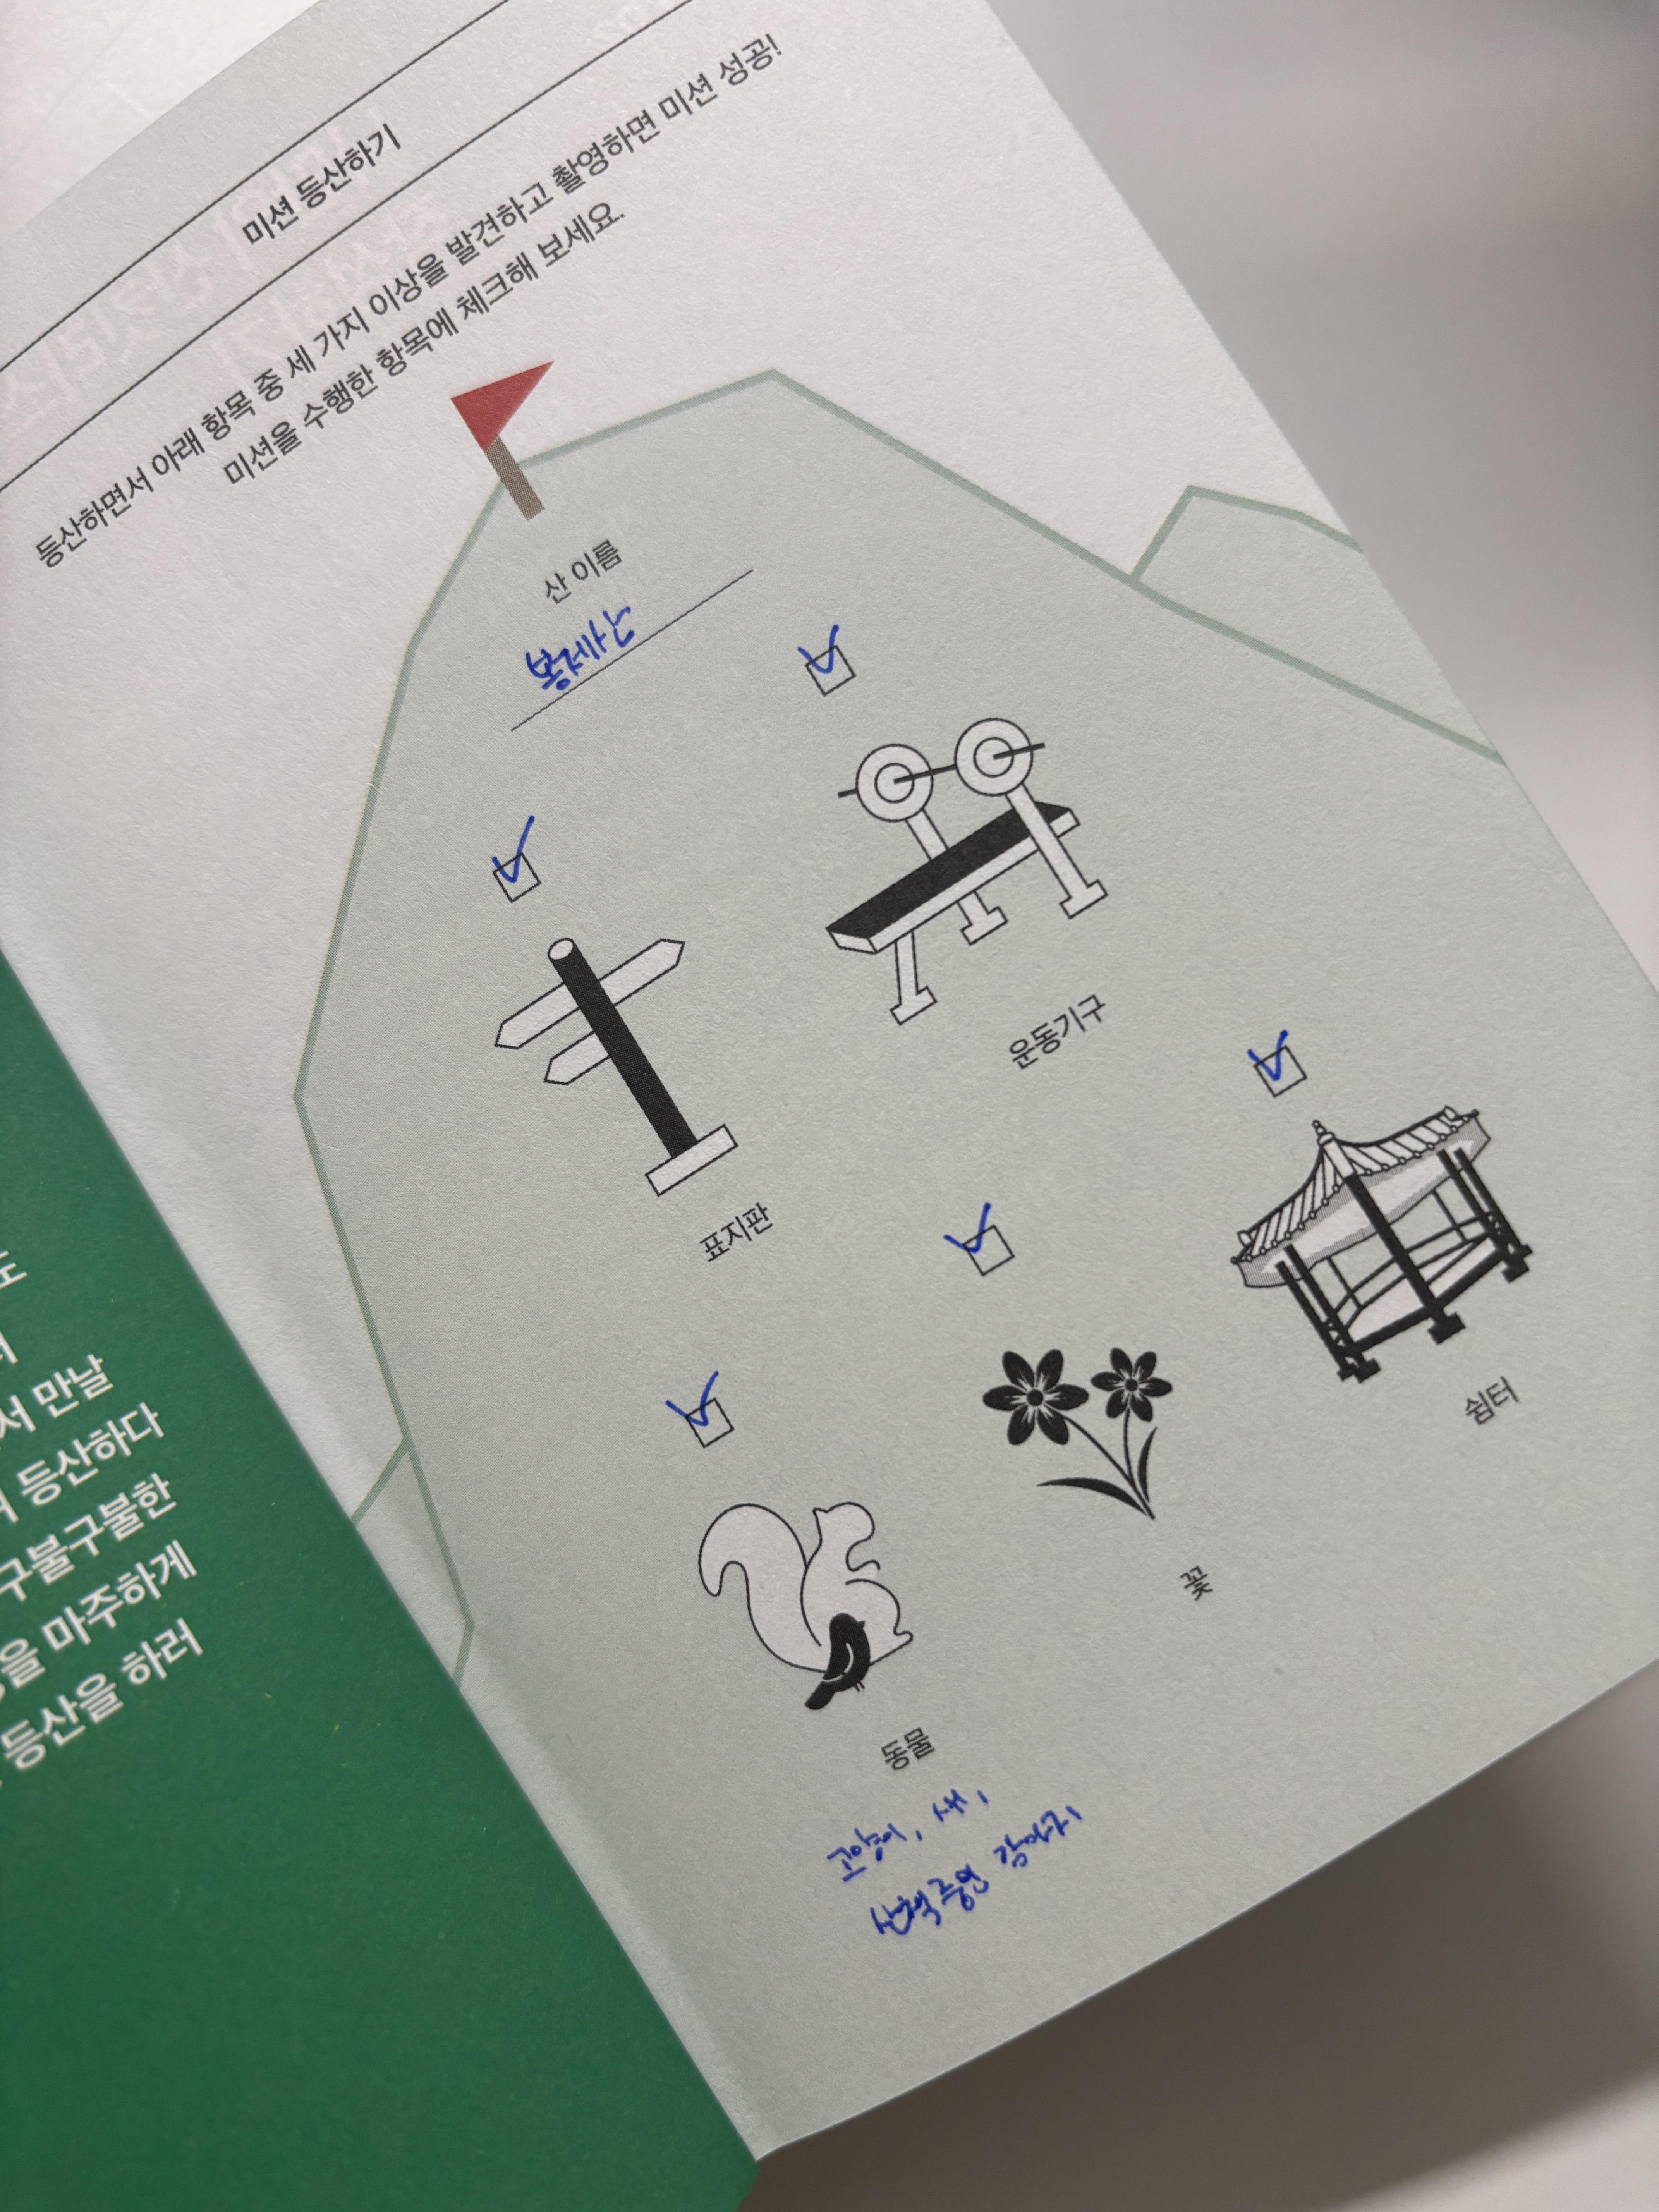 미션 등산하기
등산하면서 아래 항목 중 세 가지 이상을 발견하고 촬영하면 미션 성공!
미션을 수행한 항목에 체크해 보세요.
산 이름
봉제산
운동기구
표지판
쉼터
꽃
동물
고양이, 새,
산책중인 강아지
도
서 만날
며 등산하다
구불구불한
을 마주하게
등산을 하러